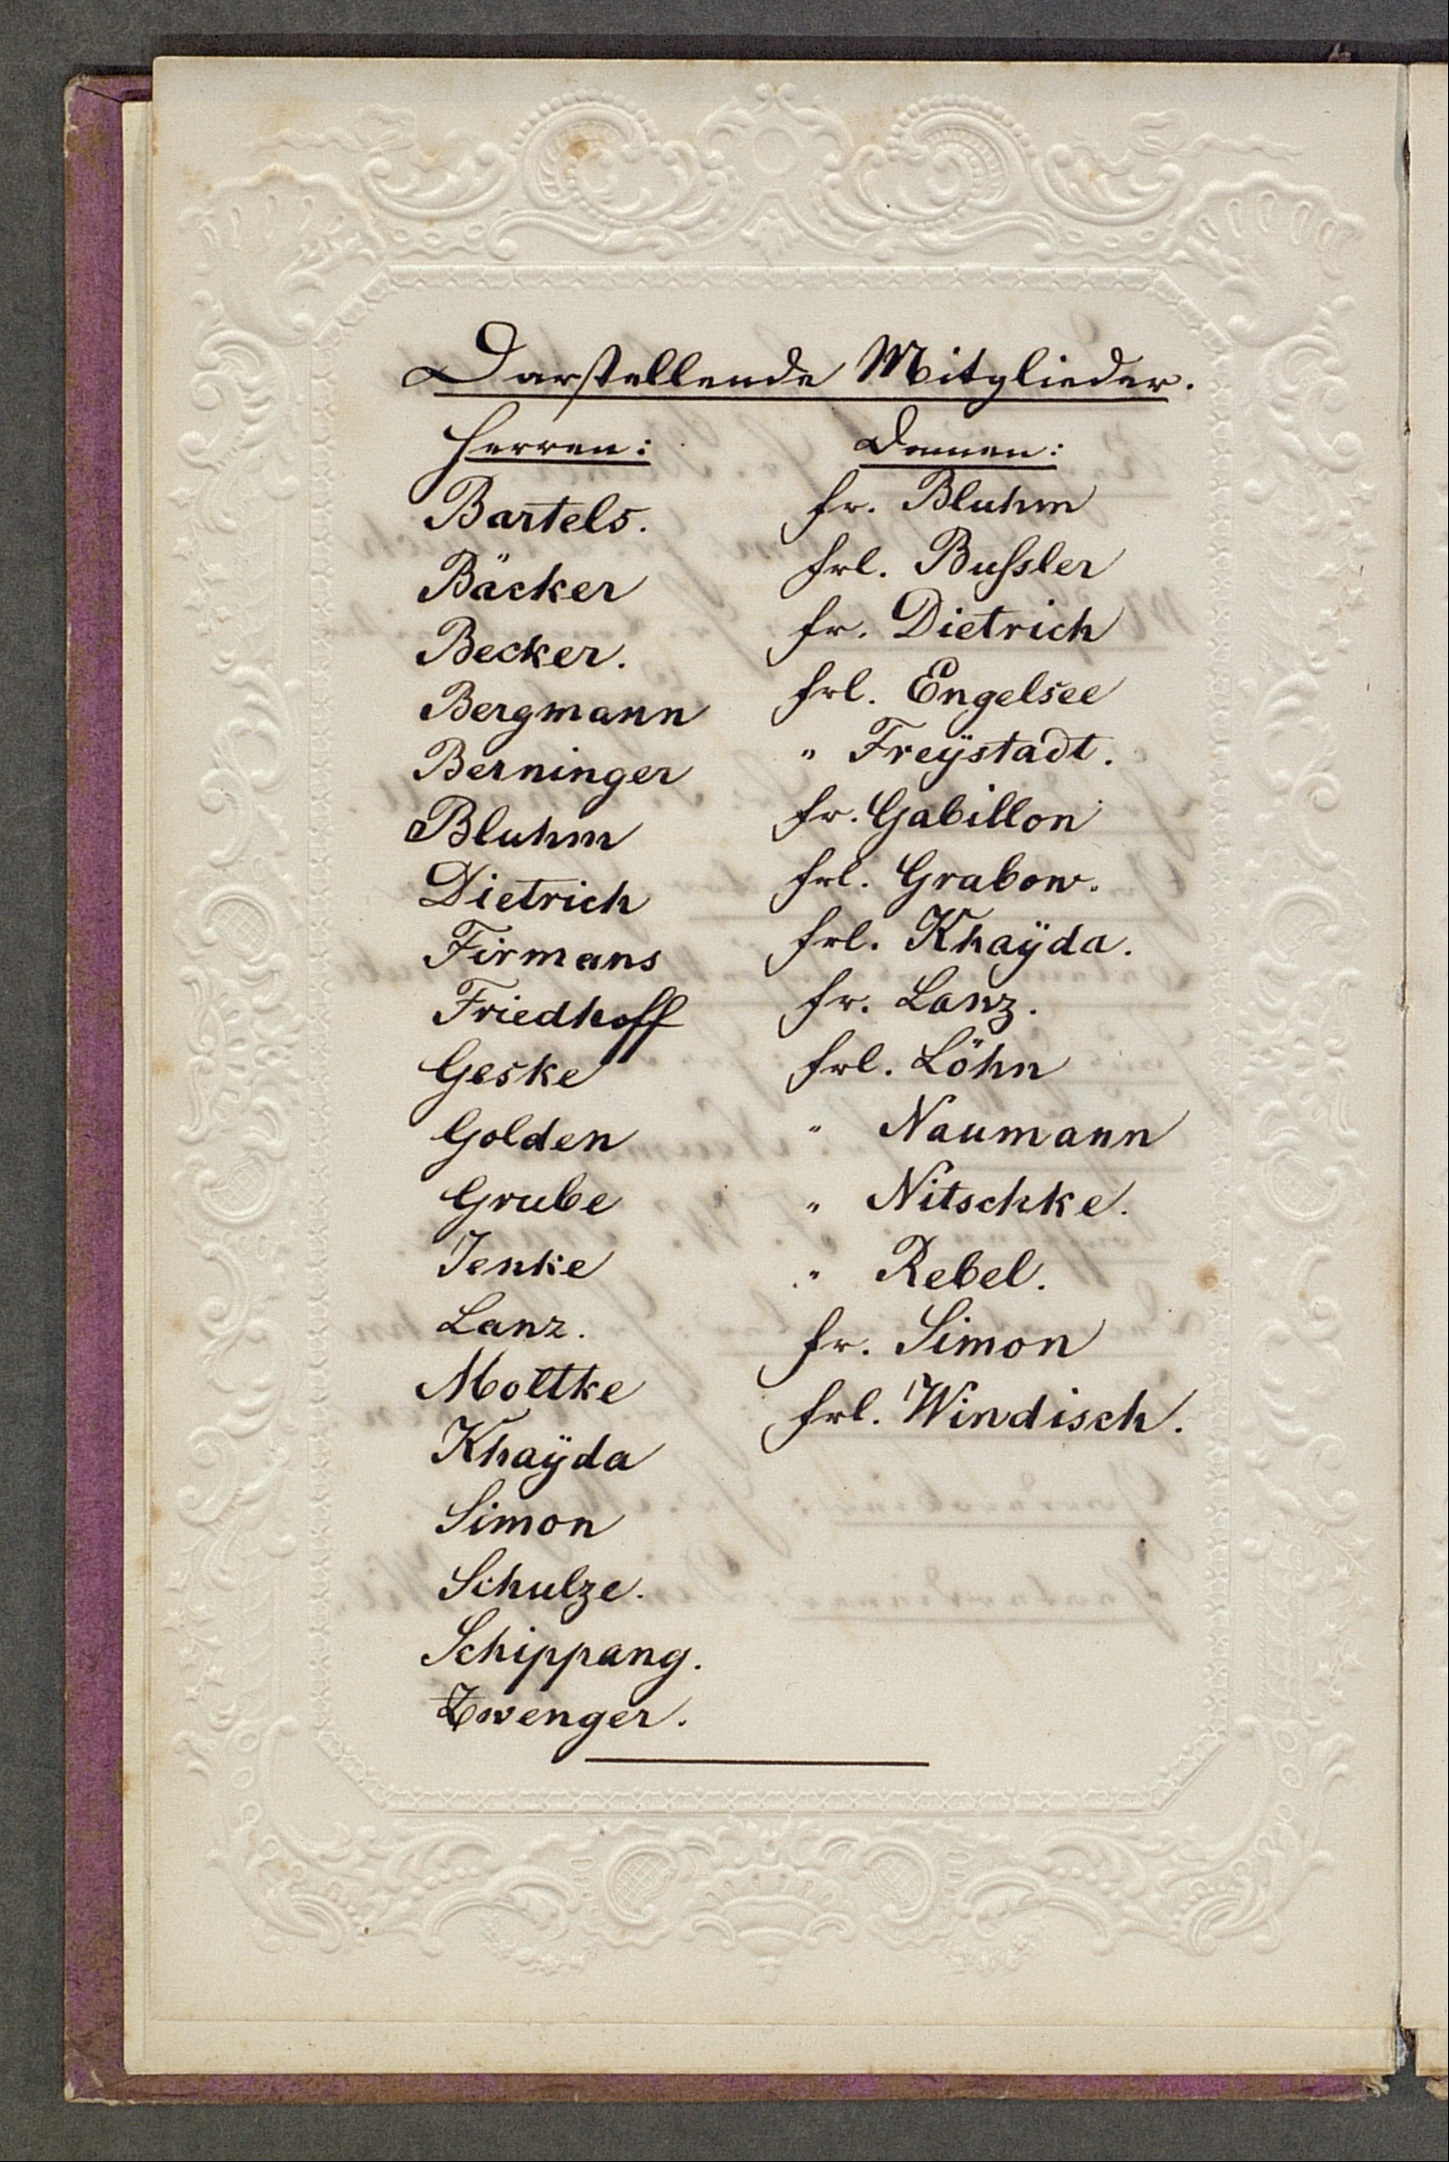 Darstellende Mitglieder.
Herren:
Bartels.
Bäcker
Becker.
Bergmann
Berninger
Bluhm
Dietrich
Firmans
Friedhoff
Geske
Golden
Grube
Jenke
Lanz.
Moltke
Khaÿda
Simon
Schulze.
Schippang.
Zwenger.
Damen:
Fr. Bluhm
Frl. Bußler
Fr. Dietrich
Frl. Engelsee
" Freÿstadt.
Fr. Gabillon
Frl. Grabow.
Frl. Khaÿda.
Fr. Lanz.
Frl. Löhn
" Naumann
" Nitschke.
" Rebel.
Fr. Simon
Frl. Windisch.